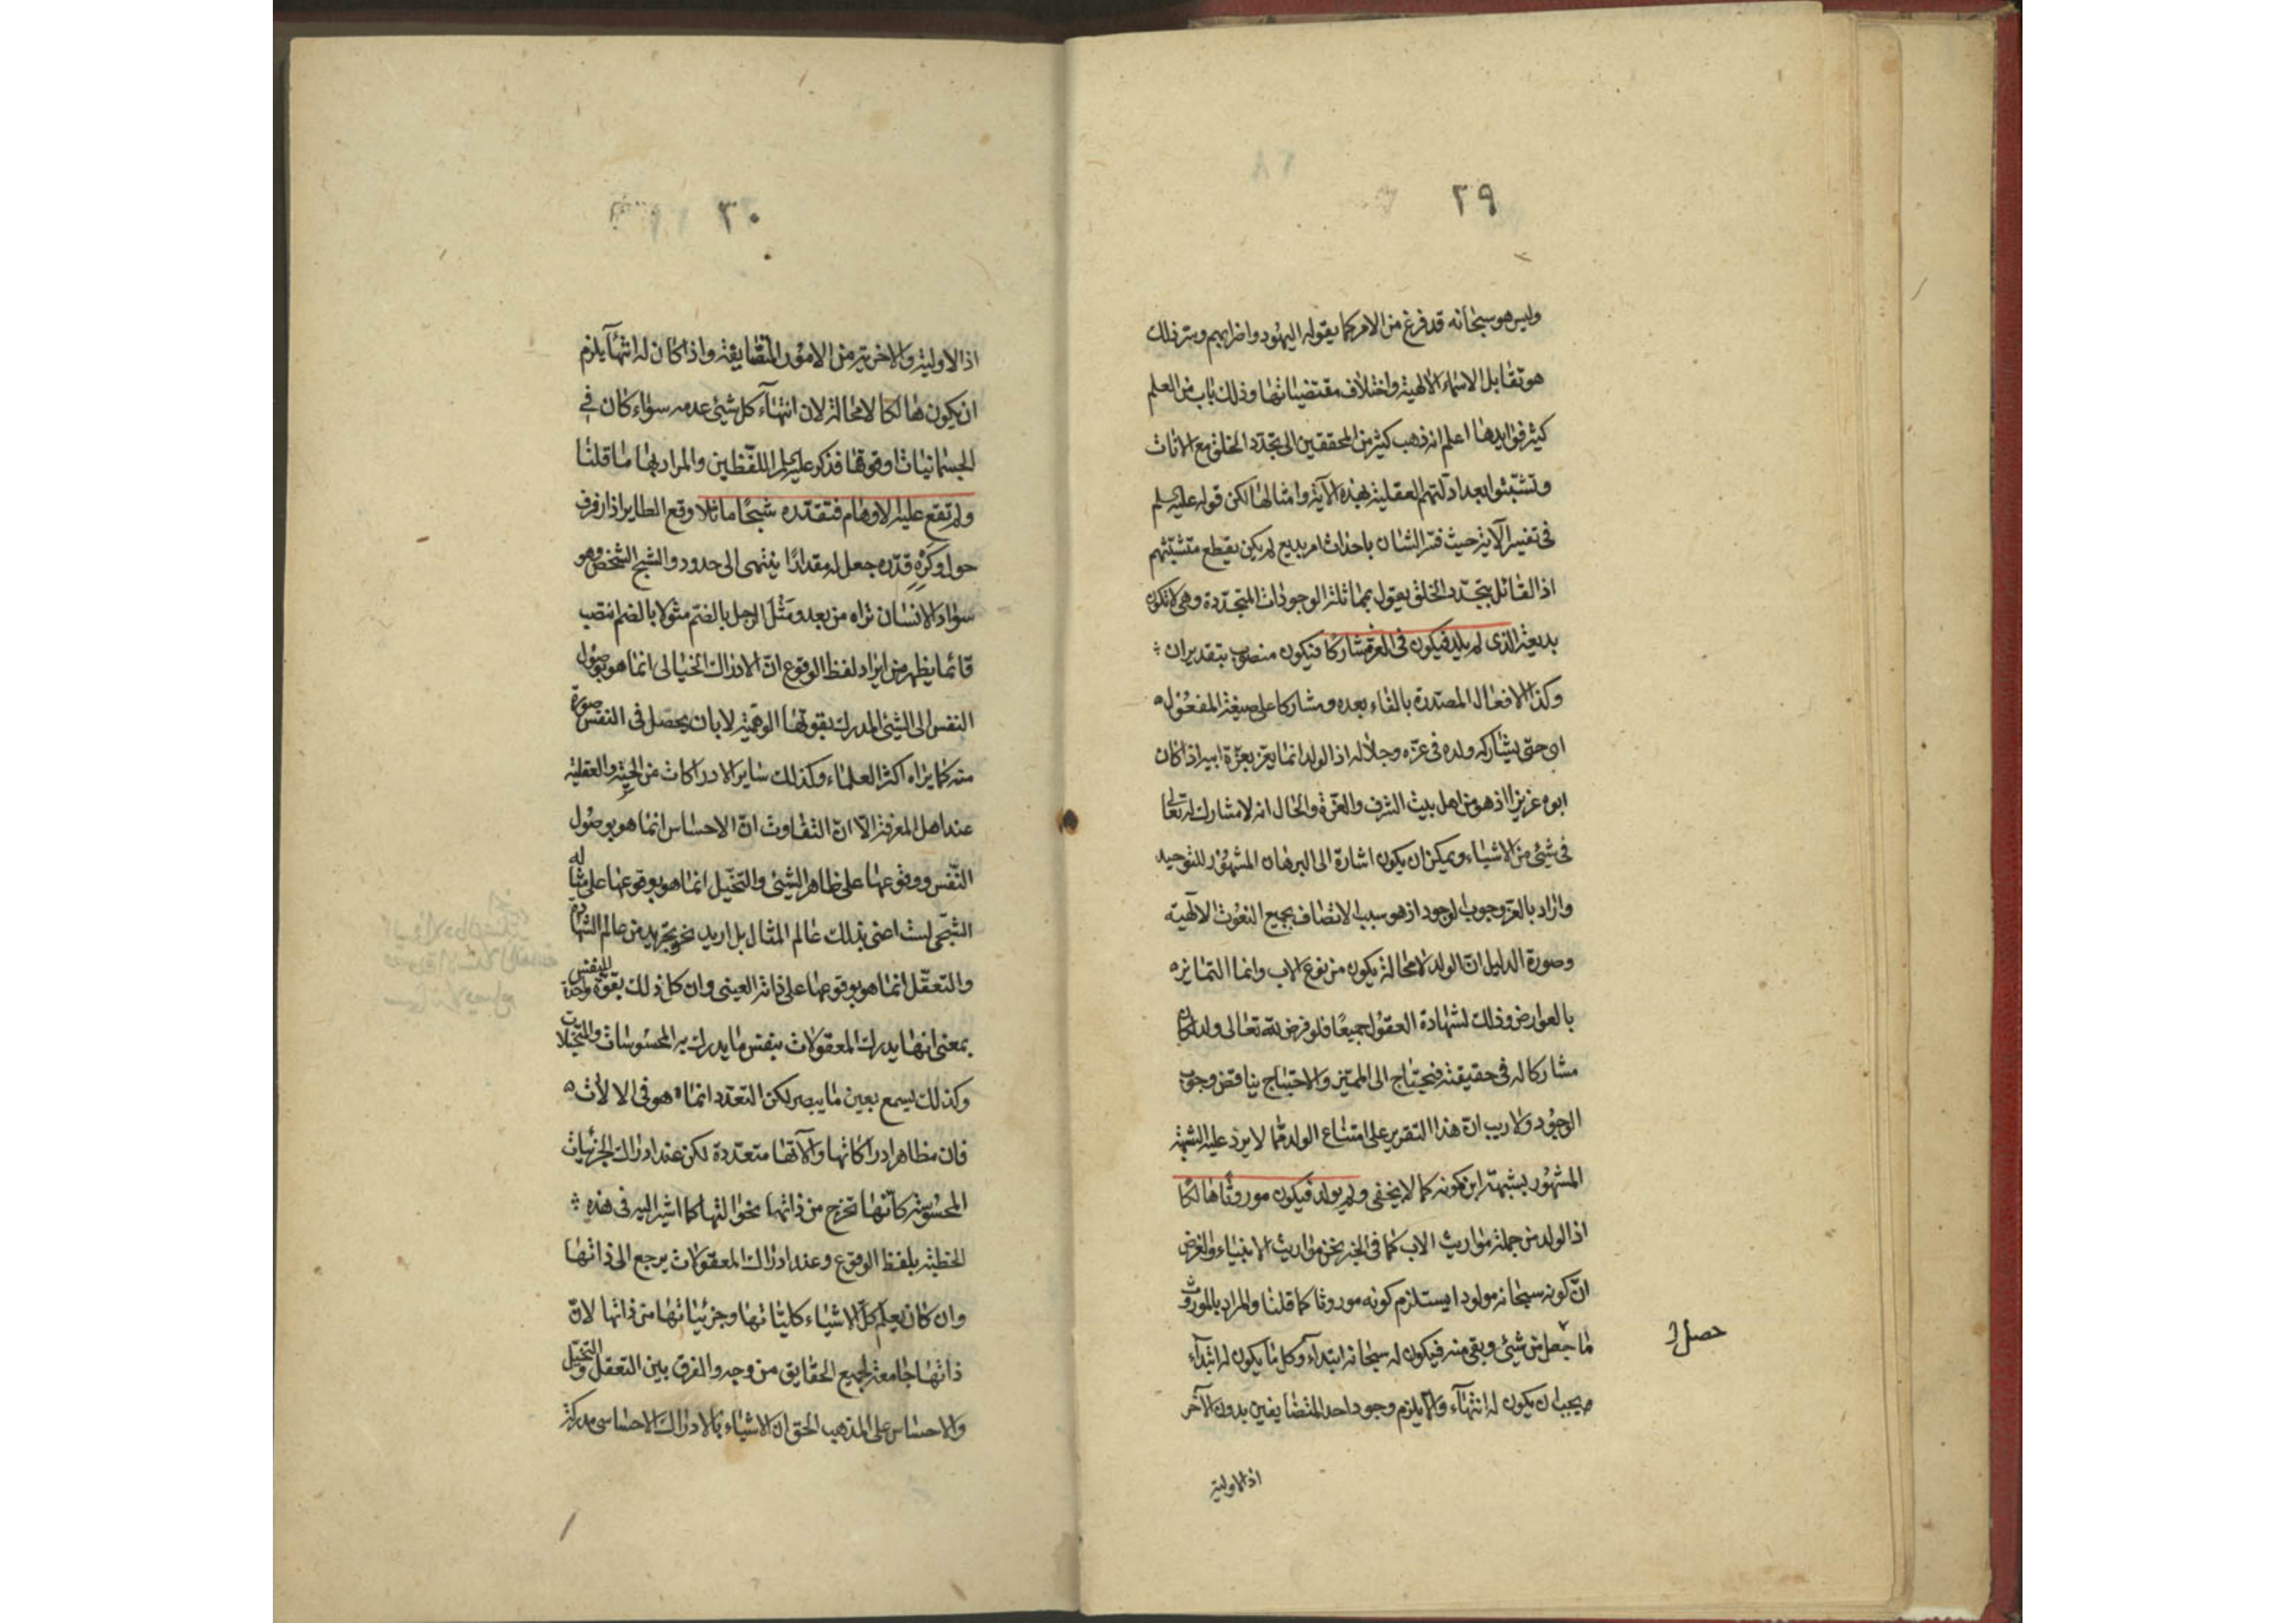 ٢٩
وليس هو سبحانه قد فرغ من الامر كما يقوله اليهود واضرابهم وسر ذلك
هو تقابل الاسماء الالهية واختلاف مقتضياتها وذلك باب من العلم
كثير فوايدها اعلم انه ذهب كثير من المحققين الى تجدد الخلق مع الانات
وتشبثوا بعد ادلتهم العقلية بهذه الآية وامثالها لكن قوله عليه السلم
فى تفسير الآية حيث فسر الشان باحداث امر بديع لم يكن يقطع متشبثهم
اذ القائل بتجدد الخلق يقول بمماثلة الوجودات المتجددة وهى لا تكون
بديعة الذى لم يلد فيكون فى العز مشاركا فيكون منصوب بتقدير ان
وكذا الافعال المصدرة بالفاء بعده ومشاركا على صيغة المفعول
اى حتى يشاركه ولده فى عزه وجلاله اذ الولد انما يعز بعزة ابيه اذا كان
ابوه عزيزا اذ هو من اهل بيت الشرف والعزة والحال انه لا مشارك له تعالى
فى شئ من الاشياء ويمكن ان يكون اشارة الى البرهان المشهور للتوحيد
واراد بالعز وجوب الوجود اذ هو سبب الاتصاف بجميع النعوت الالهية
وصورة الدليل ان الولد لا محالة يكون من نوع الاب وانما التمايز
بالعوارض وذلك لشهادة العقول جميعا فلو فرض لله تعالى ولد لكان
مشاركا له فى حقيقته فيحتاج الى المميز والاحتياج يناقض وجوب
الوجود ولا ريب ان هذا التقرير على امتناع الولد مما لا يرد عليه الشبهة
المشهور بشبهة ابن كمونه كما لا يخفى ولم يولد فيكون موروثا هالكا
اذ الولد من جملة مواريث الاب كما فى الخبر نحن مواريث الانبياء والغرض
ان كونه سبحانه مولودا يستلزم كونه موروثا كما قلنا والمراد بالموروث
ما حصل من شئ وبقى منه فيكون له سبحانه ابتدآء وكل ما يكون له ابتدآء
يجب ان يكون له انتهآء والا يلزم وجود احد المتضايفين بدون الآخر
حصل
اذ الاولية
٣٠
اذ الاولية والاخرية من الامور المتضايفة واذا كان له انتهآء يلزم
ان يكون هالكا لا محالة لان انتهآء كل شئ عدمه سواء كان فى
الجسمانيات او فوقها فذكر عليه السلم اللفظين والمراد بهما ما قلنا
ولم تقع عليه الاوهام فتقدره شبحا ماثلا وقع الطاير اذا رفرف
حول وكره قدره جعل له مقدارا ينتهى الى حدود والشبح الشخص وهو
سواد الانسان تراه من بعد ومثل الرجل بالضم مثولا بالضم انتصب
قائما يظهر من ايراد لفظ الوقوع ان الادراك الخيالى انما هو بوصول
النفس الى الشئ المدرك بقوتها الوهمية لا بان يحصل فى النفس صورة
منه كما يراه اكثر العلماء وكذلك ساير الادراكات من الحسية والعقلية
عند اهل المعرفة الا ان التفاوت ان الاحساس انما هو بوصول
النفس ووقوعها على ظاهر الشئ والتخيل انما هو بوقوعها على مثاله
الشبحى لست اعنى بذلك عالم المثال بل اريد نحو تجريد من عالم الشهادة
والتعقل انما هو بوقوعها على ذاته العينى وان كل ذلك بقوة واحدة للنفس
بمعنى انها يدرك المعقولات بنفس ما يدرك به المحسوسات والمتخيلات
وكذلك يسمع بعين ما يبصر لكن التعدد انما هو فى الالات
فان مظاهر ادراكاتها والآتها متعددة لكن عند ادراك الجزئيات
المحسوسة كانها تخرج من ذاتها نحو التها كما اشير اليه فى هذه
الخطبة بلفظ الوقوع وعند ادراك المعقولات يرجع الى ذاتها
وان كان يعلم كل الاشياء كلياتها وجزئياتها من ذاتها لان
ذاتها جامعة لجميع الحقايق من وجه والفرق بين التعقل والتخيل
والاحساس على المذهب الحق ان الاشياء بالادراك الاحساسى مدركة